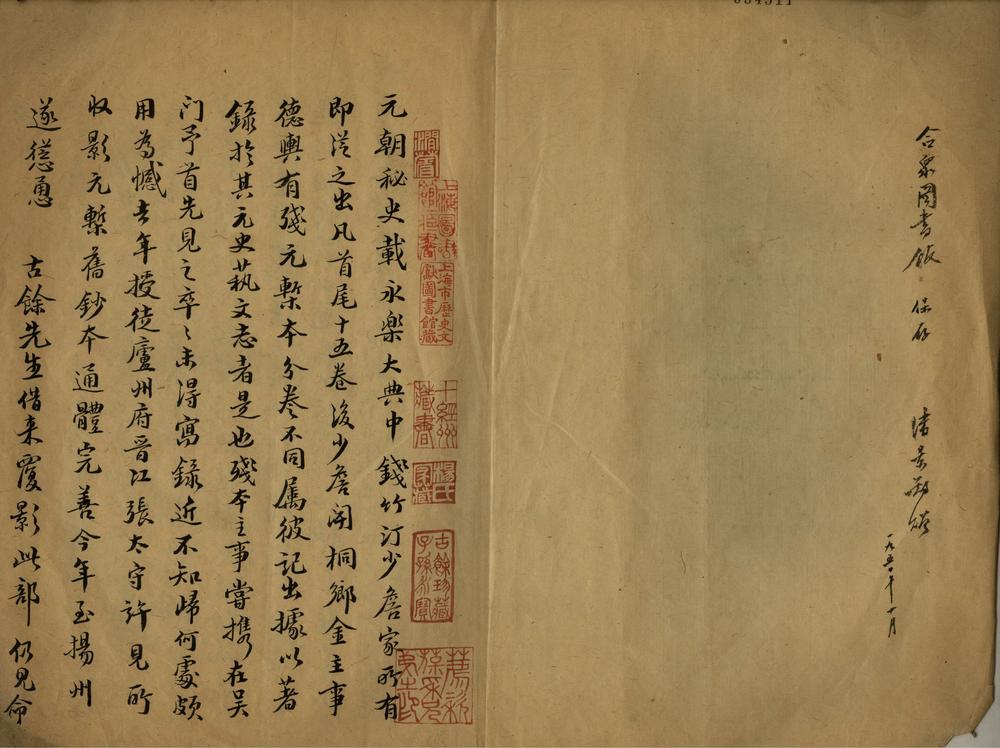 合衆圖書館 保存
一九五〇年十月
元朝秘史載永樂大典中 錢竹汀少詹家所有
即從之出凡首尾十五卷後少詹聞桐鄉金主事
德輿有殘元槧本分卷不同屬彼記出據以著
錄於其元史藝文志者是也殘本主事嘗攜在吴
门予首先見之卒〻未得寫錄近不知歸何處頗
用為憾去年授徒廬州府晋江張太守許見所
收影元槧舊鈔本通體完善今年至揚州
遂慫恿 古餘先生借来覆影此部 仍見命
上海圖書
上海市歷史文
獻圖書館藏
楊氏
家藏
古餘珍藏
子孫永寶